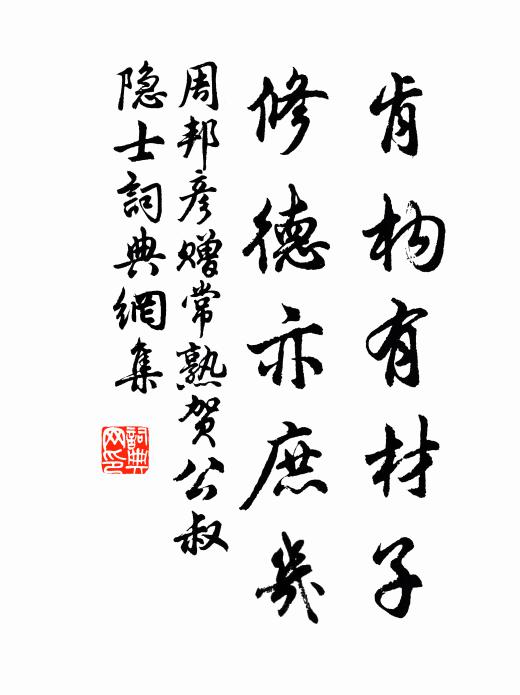 肯构有材子
修德亦庶幾
周邦彦赠常熟贺公叔
隐士詞典網集
詞典
网印